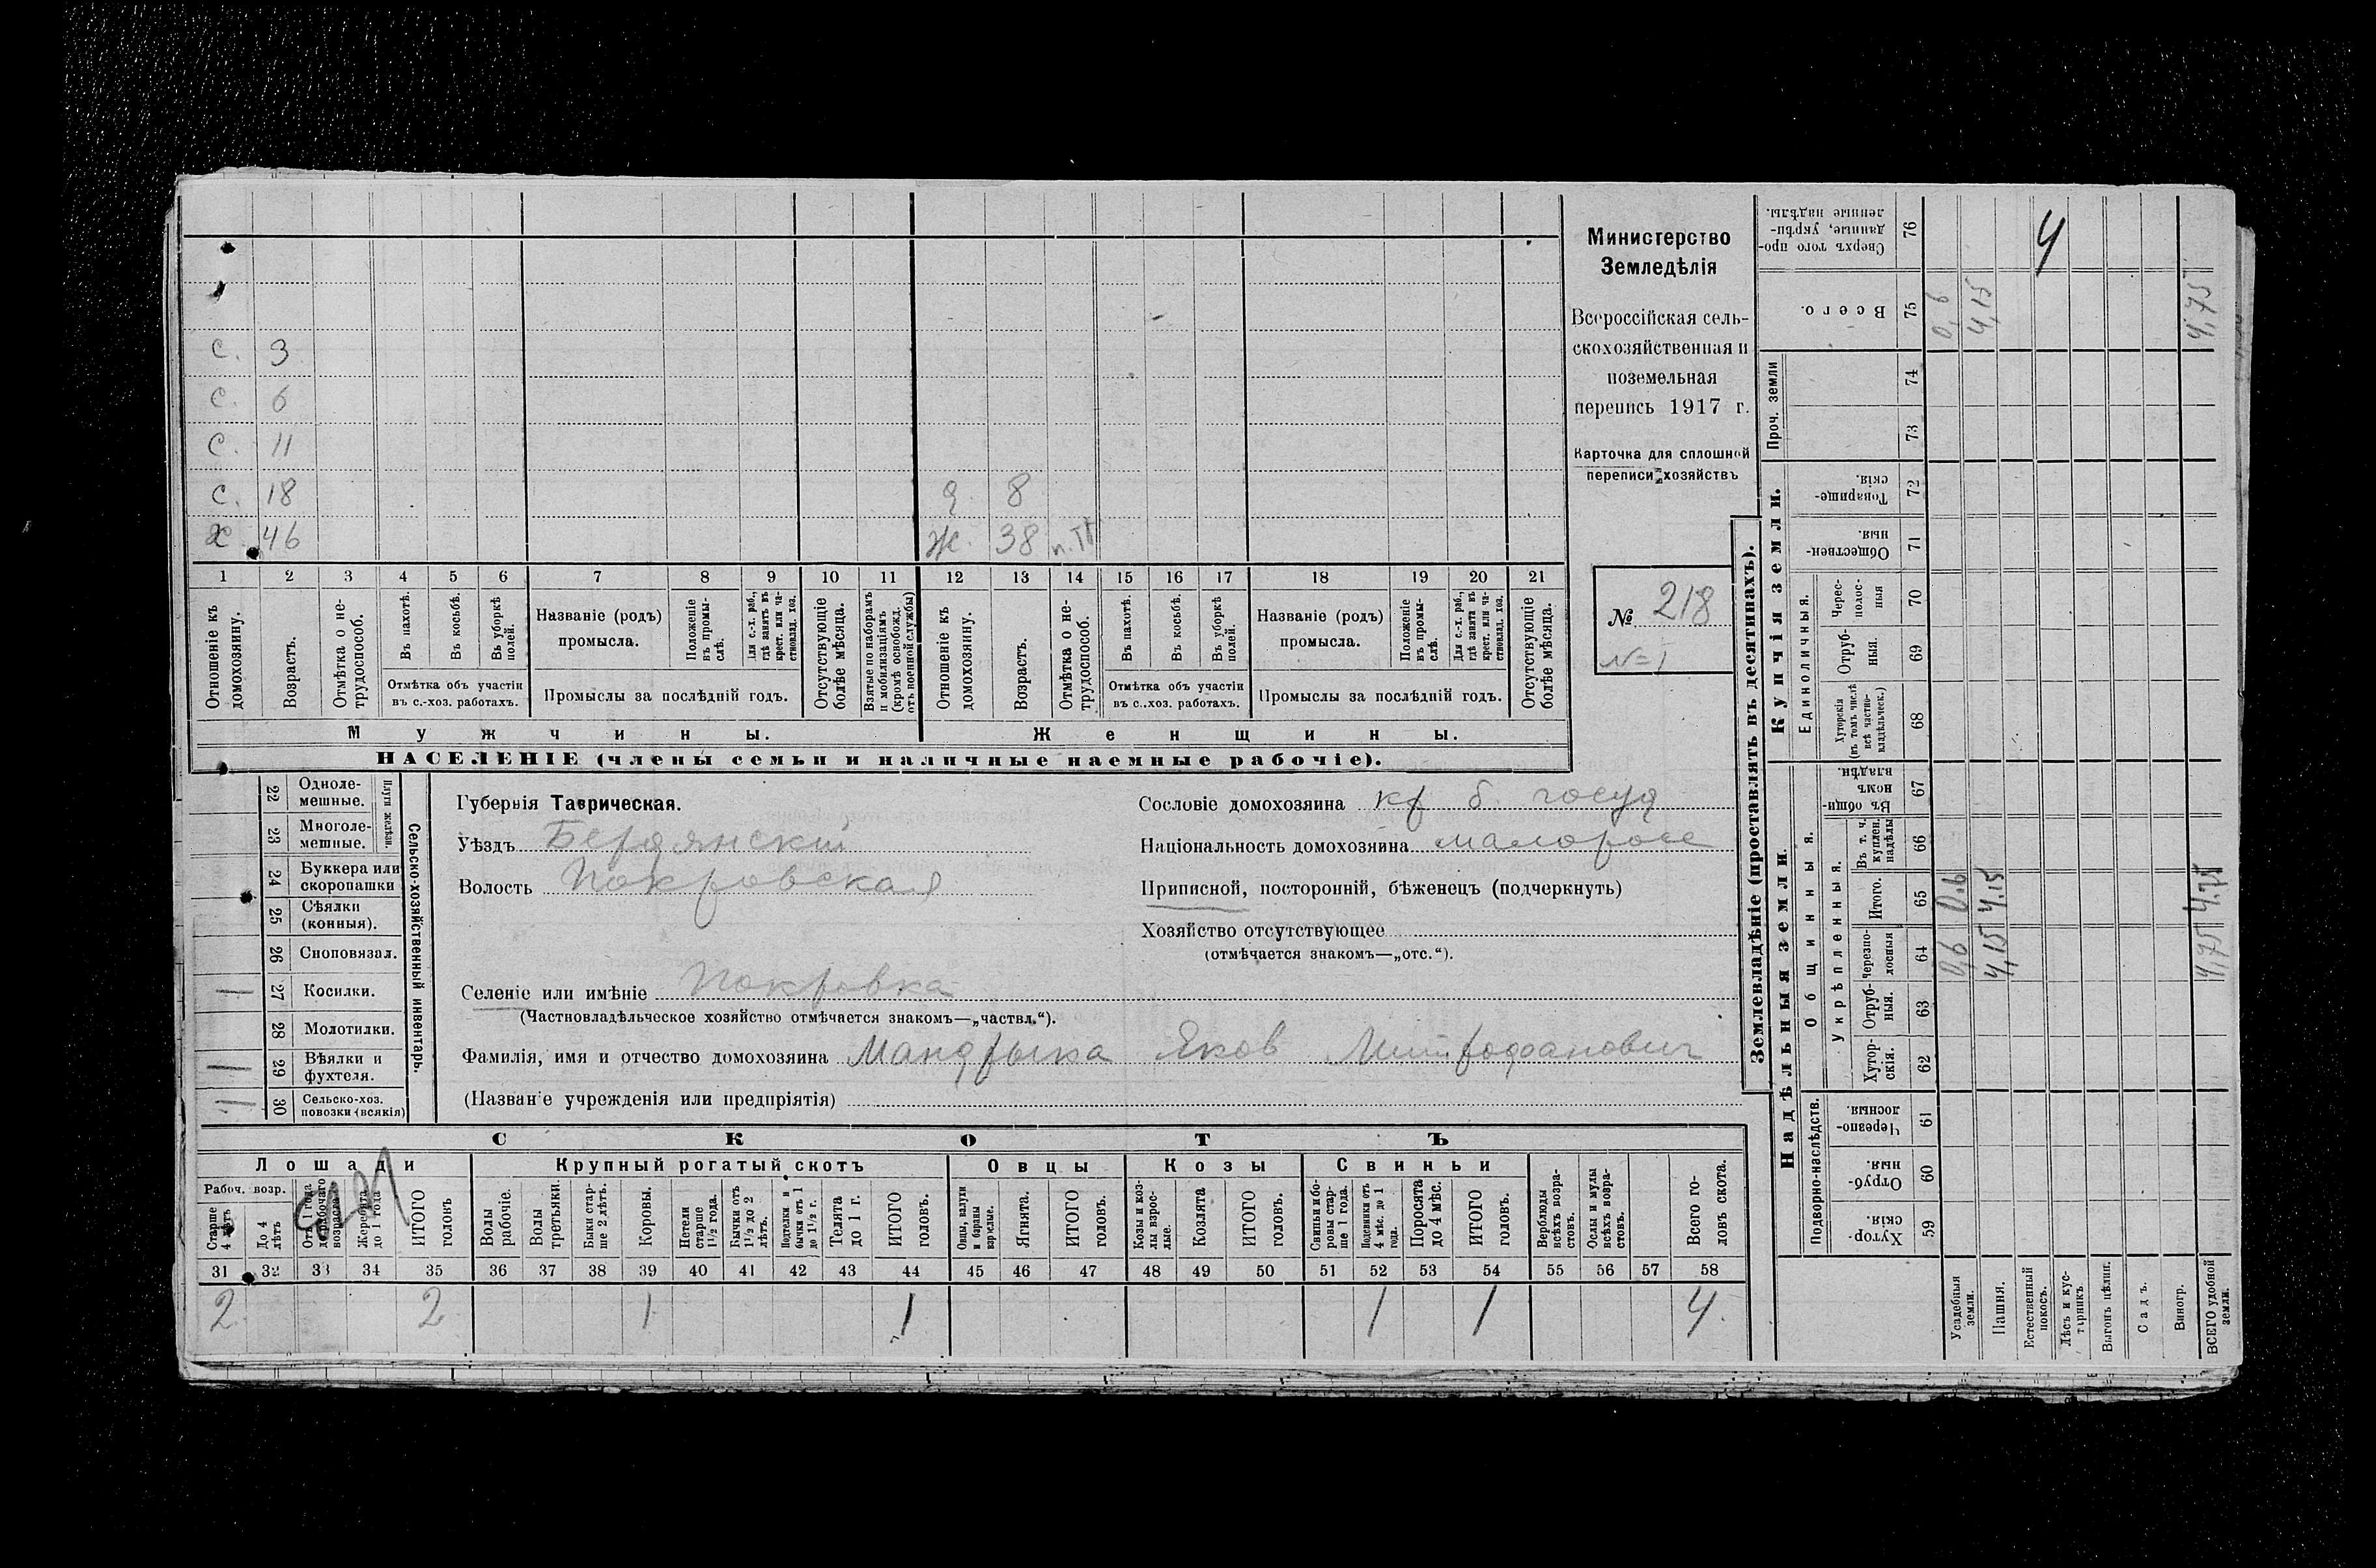 Министерство
Земледѣлія
Всероссійская сель-
скохозяйственная и
поземельная
перепись 1917 г.
Карточка для сплошной
переписи хозяйствъ
№ 218
№ 1
с. 3
с. 6
с. 11
с. 18 д. 8
х. 46 ж. 38
1 2 3 4 5 6 7 8 9 10 11 12 13 14 15 16 17 18 19 20 21
Отношеніе къ домохозяину.
Возрастъ.
Отмѣтка о не-
трудоспособ.
Въ пахотѣ.
Въ косьбѣ.
Въ уборкѣ полей.
Отмѣтка объ участіи
въ с.-хоз. работахъ.
Названіе (родъ)
промысла.
Положеніе въ промы-
слѣ.
Для с.-х. раб., гдѣ занятъ въ крест. или ча-
стновлад. хоз.
Промыслы за послѣдній годъ.
Отсутствующіе болѣе мѣсяца.
Взятые по наборамъ и мобилизаціямъ (кромѣ освобожд. отъ военной службы)
Отношеніе къ домохозяину.
Возрастъ.
Отмѣтка о не-
трудоспособ.
Въ пахотѣ.
Въ косьбѣ.
Въ уборкѣ полей.
Отмѣтка объ участіи
въ с.-хоз. работахъ.
Названіе (родъ)
промысла.
Положеніе въ промы-
слѣ.
Для с.-х. раб., гдѣ занятъ въ крест. или ча-
стновлад. хоз.
Промыслы за послѣдній годъ.
Отсутствующіе болѣе мѣсяца.
Мужчины. Женщины.
НАСЕЛЕНІЕ (члены семьи и наличные наемные рабочіе).
Сельско-хозяйственный инвентарь.
Плуги желѣзн.
22 Одноле-
мешные.
23 Многоле-
мешные.
24 Буккера или
скоропашки
25 Сѣялки
(конныя).
26 Сноповязал.
1 27 Косилки.
28 Молотилки.
1 29 Вѣялки и
фухтеля.
1 30 Сельско-хоз.
повозки (всякія)
Губернія Таврическая.
Уѣздъ Бердянский
Волость Покровская
Селеніе или имѣніе Покровка
(Частновладѣльческое хозяйство отмѣчается знакомъ—„частвл.“).
Фамилія, имя и отчество домохозяина Мандрыка Яков Митрофанович
(Названіе учрежденія или предпріятія)
Сословіе домохозяина кр б. госуд
Національность домохозяина малоросс
Приписной, посторонній, бѣженецъ (подчеркнуть)
Хозяйство отсутствующее
(отмѣчается знакомъ—„отс.“).
СКОТЪ
Лошади Крупный рогатый скотъ Овцы Козы Свиньи
Рабоч. возр.
Старше 4 лѣтъ
До 4 лѣтъ
Отъ 1 года до рабочаго возраста
Жеребята до 1 года
ИТОГО головъ
Волы рабочіе.
Волы третьяки.
Быки стар-
ше 2 лѣтъ.
Коровы.
Нетели старше 1½ года.
Бычки отъ 1½ до 2 лѣтъ.
Подтелки и бычки отъ 1 до 1½ г.
Телята до 1 г.
ИТОГО головъ.
Овцы, валухи и бараны взрослые.
Ягнята.
ИТОГО головъ.
Козы и коз-
лы взрос-
лые.
Козлята
ИТОГО головъ.
Свиньи и бо-
ровы стар-
ше 1 года.
Подсвинки отъ 4 мѣс. до 1 года.
Поросята до 4 мѣс.
ИТОГО головъ.
Верблюды всѣхъ возра-
стовъ.
Ослы и мулы всѣхъ возра-
стовъ.
Всего го-
ловъ скота.
31 32 33 34 35 36 37 38 39 40 41 42 43 44 45 46 47 48 49 50 51 52 53 54 55 56 57 58
2 2 1 1 1 1 4
Землевладѣніе (проставлять въ десятинахъ).
Купчія земли.
Надѣльныя земли.
Сверхъ того про-
данные, укрѣп-
ленные надѣлы. 76
Всего. 75 0,6 4,15 4,75
4
Проч. земли 74 73
Товарище-
скія. 72
Обществен-
ныя. 71
Единоличныя.
Черес-
полос-
ныя 70
Отруб-
ныя. 69
Хуторскія (въ томъ числѣ всѣ частно-
владѣльческ.) 68
Общинныя.
Въ общи-
номъ владѣн. 67
Укрѣпленныя.
Въ т. ч. куплен. надѣлы 66
Итого. 65 0,6 4,15 4,75
Черезпо-
лосныя 64 0,6 4,15 4,75
Отруб-
ныя. 63
Хутор-
скія. 62
Подворно-наслѣдств.
Черезпо-
лосныя. 61
Отруб-
ныя. 60
Хутор-
скія. 59
Усадебныя земли.
Пашня.
Естественный покосъ.
Лѣсъ и кус-
тарникъ.
Выгонъ цѣлин.
Садъ.
Виногр.
ВСЕГО удобной земли.